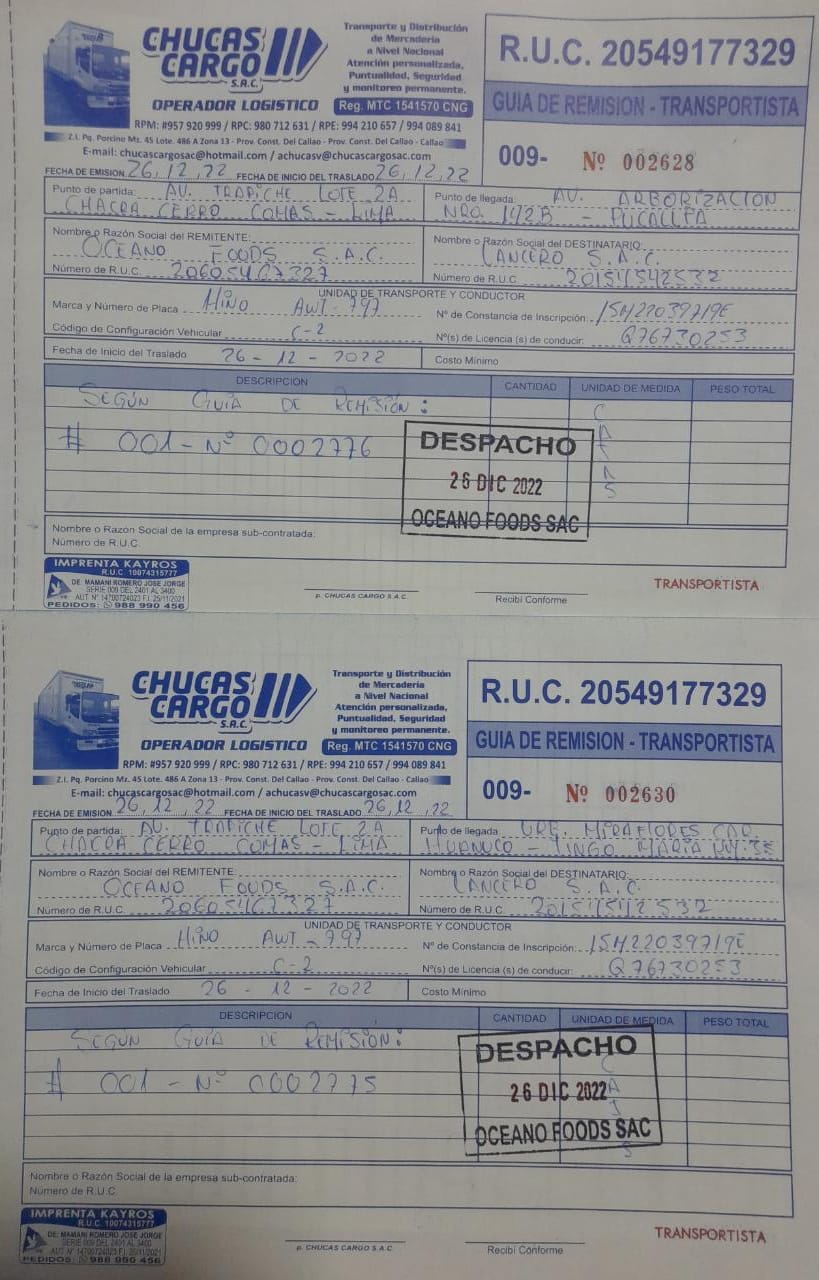 CHUCAS CARGO S.A.C.
OPERADOR LOGISTICO
Transporte y Distribución
de Mercadería
a Nivel Nacional
Atención personalizada,
Puntualidad, Seguridad
y monitoreo permanente.
Reg. MTC 1541570 CNG
RPM: #957 920 999 / RPC: 980 712 631 / RPE: 994 210 657 / 994 089 841
Z.I. Pq. Porcino Mz. 45 Lote. 486 A Zona 13 - Prov. Const. Del Callao - Prov. Const. Del Callao - Callao
E-mail: chucascargosac@hotmail.com / achucasv@chucascargosac.com
R.U.C. 20549177329
GUIA DE REMISION - TRANSPORTISTA
009- Nº 002628
FECHA DE EMISION 26, 12, 22 FECHA DE INICIO DEL TRASLADO 26, 12, 22
Punto de partida: AV. TRAPICHE LOTE 2A
CHACRA CERRO COMAS - LIMA
Punto de llegada: AV. ARBORIZACION
NRO. 142B - PUCALLPA
Nombre o Razón Social del REMITENTE:
OCEANO FOODS S.A.C.
Número de R.U.C. 20605467327
Nombre o Razón Social del DESTINATARIO:
LANCERO S.A.C.
Número de R.U.C. 20151542532
UNIDAD DE TRANSPORTE Y CONDUCTOR
Marca y Número de Placa HINO AWT-797
Nº de Constancia de Inscripción: 15M22039719E
Código de Configuración Vehicular C-2
Nº(s) de Licencia (s) de conducir: Q76730253
Fecha de Inicio del Traslado 26-12-2022
Costo Mínimo
DESCRIPCION CANTIDAD UNIDAD DE MEDIDA PESO TOTAL
SEGÚN GUÍA DE REMISIÓN:
# 001-Nº 0002776
DESPACHO
26 DIC 2022
OCEANO FOODS SAC
Nombre o Razón Social de la empresa sub-contratada:
Número de R.U.C.
IMPRENTA KAYROS
R.U.C. 10074315777
DE: MAMANI ROMERO JOSE JORGE
SERIE 009 DEL 2401 AL 3400
AUT. Nº 14700724023 F.I. 25/11/2021
PEDIDOS: 988 990 456
p. CHUCAS CARGO S.A.C.
Recibí Conforme
TRANSPORTISTA
CHUCAS CARGO S.A.C.
OPERADOR LOGISTICO
Transporte y Distribución
de Mercadería
a Nivel Nacional
Atención personalizada,
Puntualidad, Seguridad
y monitoreo permanente.
Reg. MTC 1541570 CNG
RPM: #957 920 999 / RPC: 980 712 631 / RPE: 994 210 657 / 994 089 841
Z.I. Pq. Porcino Mz. 45 Lote. 486 A Zona 13 - Prov. Const. Del Callao - Prov. Const. Del Callao - Callao
E-mail: chucascargosac@hotmail.com / achucasv@chucascargosac.com
R.U.C. 20549177329
GUIA DE REMISION - TRANSPORTISTA
009- Nº 002630
FECHA DE EMISION 26, 12, 22 FECHA DE INICIO DEL TRASLADO 26, 12, 22
Punto de partida: AV. TRAPICHE LOTE 2A
CHACRA CERRO COMAS - LIMA
Punto de llegada URB. MIRAFLORES CAR.
HUANUCO - TINGO MARIA
Nombre o Razón Social del REMITENTE:
OCEANO FOODS S.A.C.
Número de R.U.C. 20605467327
Nombre o Razón Social del DESTINATARIO:
LANCERO S.A.C.
Número de R.U.C. 20151542532
UNIDAD DE TRANSPORTE Y CONDUCTOR
Marca y Número de Placa HINO AWT-797
Nº de Constancia de Inscripción: 15M22039719E
Código de Configuración Vehicular C-2
Nº(s) de Licencia (s) de conducir: Q76730253
Fecha de Inicio del Traslado 26-12-2022
Costo Mínimo
DESCRIPCION CANTIDAD UNIDAD DE MEDIDA PESO TOTAL
SEGUN GUÍA DE REMISIÓN:
# 001-Nº 0002775
DESPACHO
26 DIC 2022
OCEANO FOODS SAC
Nombre o Razón Social de la empresa sub-contratada:
Número de R.U.C.
IMPRENTA KAYROS
R.U.C. 10074315777
DE: MAMANI ROMERO JOSE JORGE
SERIE 009 DEL 2401 AL 3400
AUT. Nº 14700724023 F.I. 25/11/2021
PEDIDOS: 988 990 456
p. CHUCAS CARGO S.A.C.
Recibí Conforme
TRANSPORTISTA